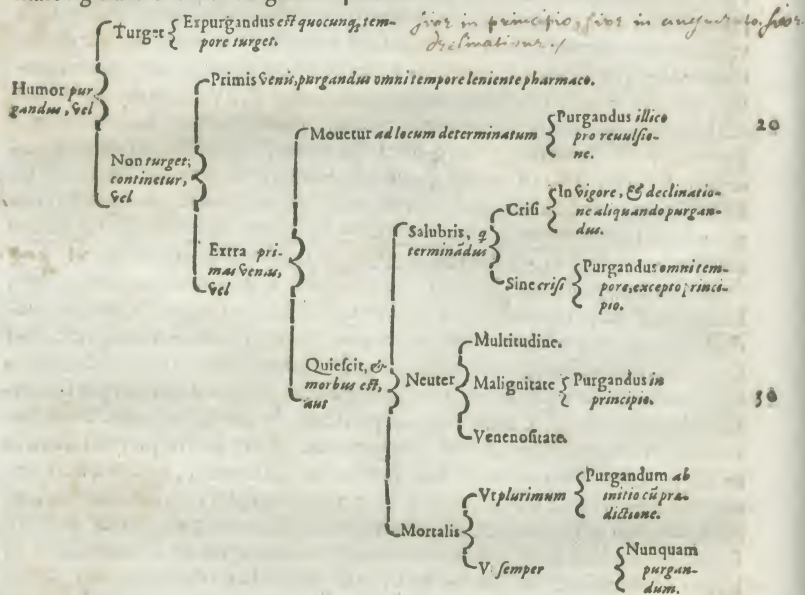 Turget
Expurgandus est quocunq, tem-
pore turget.
sive in principio, sive in augmento, sive
declinatione /
Humor pur
gandus, vel
Primis venis, purgandus omni tempore leniente pharmaco.
Non turget;
continetur,
vel
Mouetur ad locum determinatum
Purgandus illico
pro reuulsio-
ne.
20
Extra pri-
mas venas,
vel
Salubris, q
terminādus
Crisi
In vigore, & declinatio-
ne aliquando purgan-
dus.
Sine crisi
Purgandus omni tem-
pore, excepto princi-
pio.
Quiescit, &
morbus est,
aut
Neuter
Multitudine.
Malignitate
Purgandus in
principio.
30
Venenositate.
Mortalis
Vt plurimum
Purgandum ab
initio cū præ-
dictione.
V semper
Nunquam
purgan-
dum.